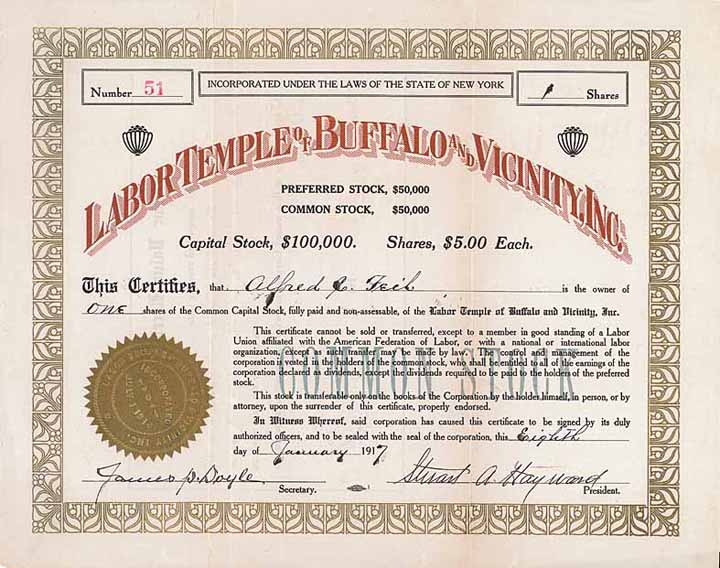 Number 51
INCORPORATED UNDER THE LAWS OF THE STATE OF NEW YORK
1 Shares
LABOR TEMPLE OF BUFFALO AND VICINITY, INC.
PREFERRED STOCK, $50,000
COMMON STOCK, $50,000
Capital Stock, $100,000. Shares, $5.00 Each.
This Certifies, that Alfred is the owner of
one shares of the Common Capital Stock, fully paid and non-assessable, of the Labor Temple of Buffalo and Vicinity, Inc.
This certificate cannot be sold or transferred, except to a member in good standing of a Labor
Union affiliated with the American Federation of Labor, or with a national or international labor
organization, except as such transfer may be made by law. The control and management of the
corporation is vested in the holders of the common stock, who shall be entitled to all of the earnings of the
corporation declared as dividends, except the dividends required to be paid to the holders of the preferred
stock.
COMMON STOCK
This stock is transferable only on the books of the Corporation by the holder himself, in person, or by
attorney, upon the surrender of this certificate, properly endorsed.
In Witness Whereof, said corporation has caused this certificate to be signed by its duly
authorized officers, and to be sealed with the seal of the corporation, this Eighth
day of January 1917
James P. Doyle Stuart A. Hayward
Secretary. President.